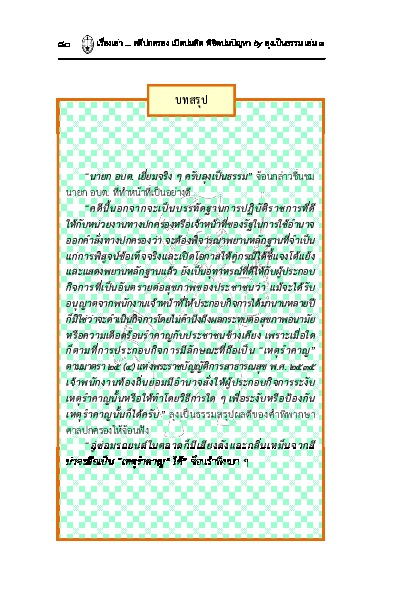 ๘๐ เรื่องเล่า ... คดีปกครอง เปิดปมคิด พิชิตปมปัญหา by ลุงเป็นธรรม เล่ม ๓
บทสรุป
“นายก อบต. เยี่ยมจริง ๆ ครับลุงเป็นธรรม” จ้อนกล่าวชื่นชม
นายก อบต. ที่ทำหน้าที่เป็นอย่างดี
“คดีนี้นอกจากจะเป็นบรรทัดฐานการปฏิบัติราชการที่ดี
ให้กับหน่วยงานทางปกครองหรือเจ้าหน้าที่ของรัฐในการใช้อำนาจ
ออกคำสั่งทางปกครองว่า จะต้องพิจารณาพยานหลักฐานที่จำเป็น
แก่การพิสูจน์ข้อเท็จจริงและเปิดโอกาสให้คู่กรณีได้ชี้แจงโต้แย้ง
และแสดงพยานหลักฐานแล้ว ยังเป็นอุทาหรณ์ที่ดีให้กับผู้ประกอบ
กิจการที่เป็นอันตรายต่อสุขภาพของประชาชนว่า แม้จะได้รับ
อนุญาตจากพนักงานเจ้าหน้าที่ให้ประกอบกิจการได้มานานหลายปี
ก็มิใช่ว่าจะดำเนินกิจการโดยไม่คำนึงถึงผลกระทบต่อสุขภาพอนามัย
หรือความเดือดร้อนรำคาญกับประชาชนข้างเคียง เพราะเมื่อใด
ก็ตามที่การประกอบกิจการมีลักษณะที่ถือเป็น “เหตุรำคาญ”
ตามมาตรา ๒๕ (๔) แห่งพระราชบัญญัติการสาธารณสุข พ.ศ. ๒๕๓๕
เจ้าพนักงานท้องถิ่นย่อมมีอำนาจสั่งให้ผู้ประกอบกิจการระงับ
เหตุรำคาญนั้นหรือให้ทำโดยวิธีการใด ๆ เพื่อระงับหรือป้องกัน
เหตุรำคาญนั้นก็ได้ครับ” ลุงเป็นธรรมสรุปผลดีของคำพิพากษา
ศาลปกครองให้จ้อนฟัง
“อู่ซ่อมรถยนต์ในตลาดก็มีเสียงดังและกลิ่นเหม็นจากสี
น่าจะถือเป็น “เหตุรำคาญ” ได้” จ้อนรำพึงเบา ๆ